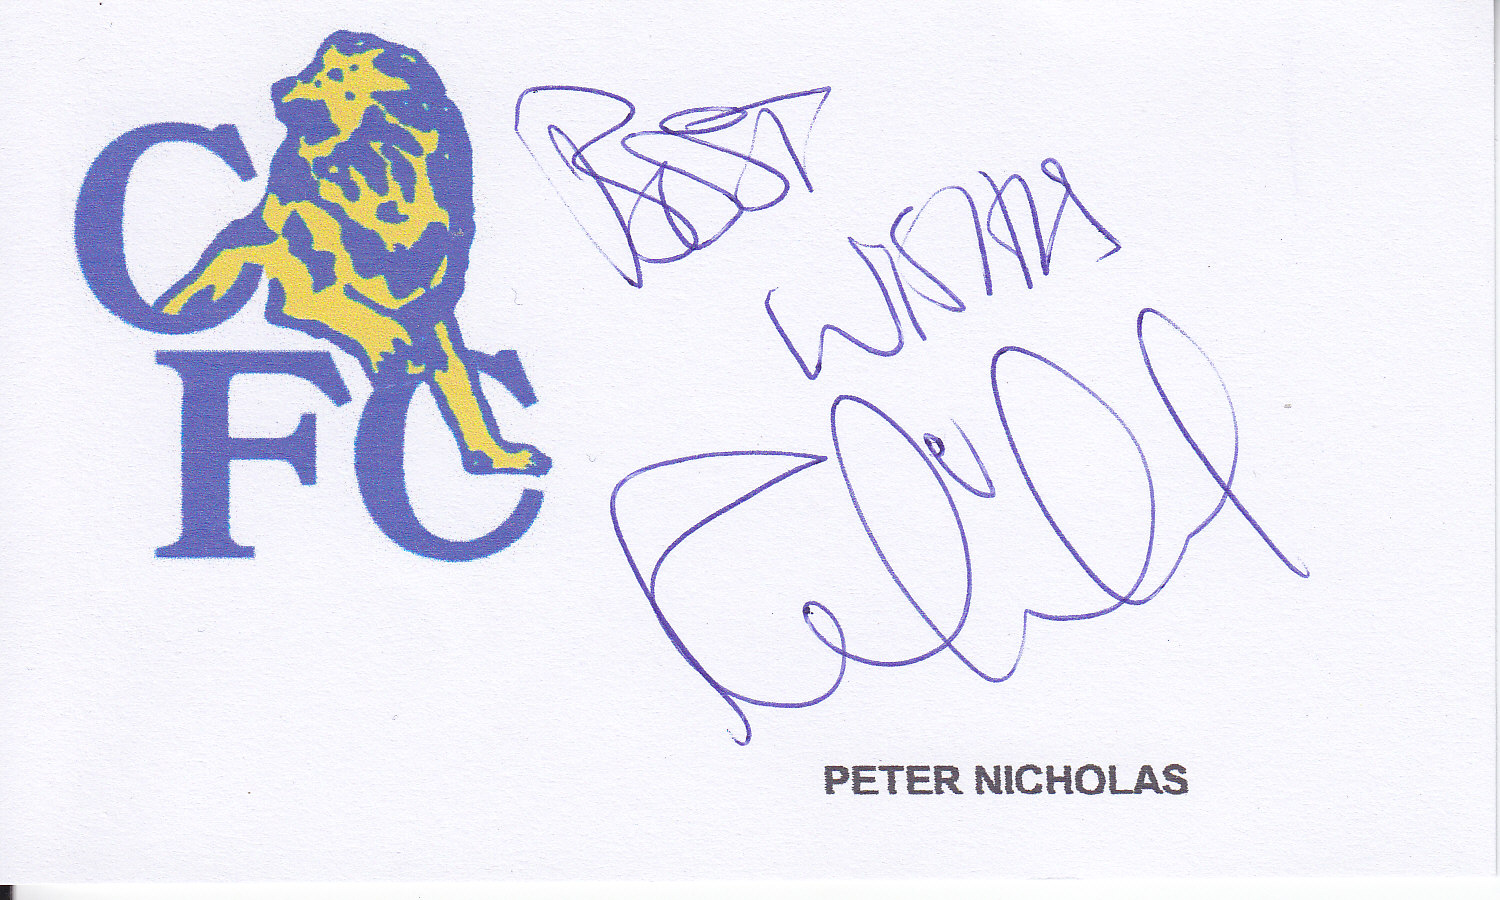 CFC
BEST
WISHES
PETER NICHOLAS